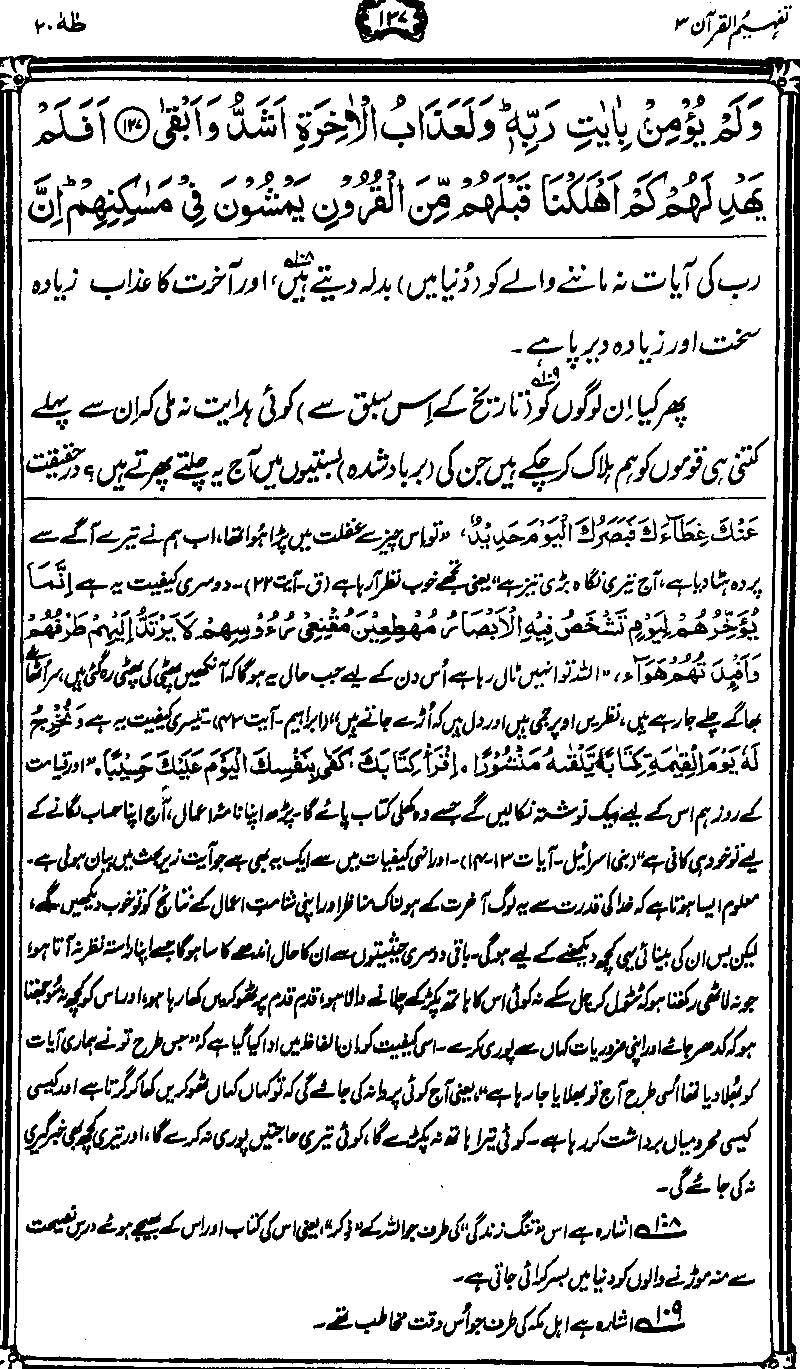 تفہیم القرآن ۳
۱۳۷
طٰہٰ ۲۰
وَلَمْ يُؤْمِنْۢ بِاٰيٰتِ رَبِّهٖ ؕ وَلَعَذَابُ الْاٰخِرَةِ اَشَدُّ وَاَبْقٰى ﴿۱۲۷﴾ اَفَلَمْ
يَهْدِ لَهُمْ كَمْ اَهْلَكْنَا قَبْلَهُمْ مِّنَ الْقُرُوْنِ يَمْشُوْنَ فِىْ مَسٰكِنِهِمْ ؕ اِنَّ
رب کی آیات نہ ماننے والے کو (دُنیا میں) بدلہ دیتے ہیں۱۰۸، اور آخرت کا عذاب زیادہ
سخت اور زیادہ دیر پا ہے۔
پھر کیا اِن لوگوں کو۱۰۹ (تاریخ کے اِس سبق سے) کوئی ہدایت نہ ملی کہ اِن سے پہلے
کتنی ہی قوموں کو ہم ہلاک کر چکے ہیں جن کی (برباد شدہ) بستیوں میں آج یہ چلتے پھرتے ہیں؟ درحقیقت
عَنْكَ غِطَآءَكَ فَبَصَرُكَ الْيَوْمَ حَدِيْدٌ، “تو اس چیز سے غفلت میں پڑا ہوا تھا، اب ہم نے تیرے آگے سے
پردہ ہٹا دیا ہے، آج تیری نگاہ بڑی تیز ہے” یعنی تجھے خوب نظر آرہا ہے (ق۔ آیت ۲۲)۔ دوسری کیفیت یہ ہے اِنَّمَا
يُؤَخِّرُهُمْ لِيَوْمٍ تَشْخَصُ فِيْهِ الْاَبْصَارُ مُهْطِعِيْنَ مُقْنِعِيْ رُءُوْسِهِمْ لَا يَرْتَدُّ اِلَيْهِمْ طَرْفُهُمْ
وَاَفْئِدَتُهُمْ هَوَآءٌ، “اللہ تو انہیں ٹال رہا ہے اُس دن کے لیے جب حال یہ ہوگا کہ آنکھیں پھٹی کی پھٹی رہ گئی ہیں، سر اُٹھائے
بھاگے چلے جا رہے ہیں، نظریں اوپر جمی ہیں اور دل ہیں کہ اُڑے جاتے ہیں” (ابراہیم۔ آیت ۴۳)۔ تیسری کیفیت یہ ہے وَنُخْرِجُ
لَهٗ يَوْمَ الْقِيٰمَةِ كِتٰبًا يَّلْقٰىهُ مَنْشُوْرًا۔ اِقْرَاْ كِتَابَكَ كَفٰى بِنَفْسِكَ الْيَوْمَ عَلَيْكَ حَسِيْبًا۔ “اور قیامت
کے روز ہم اس کے لیے ایک نوشتہ نکالیں گے جسے وہ کھلی کتاب پائے گا۔ پڑھ اپنا نامۂ اعمال، آج اپنا حساب لگانے کے
لیے تو خود ہی کافی ہے” (بنی اسرائیل۔ آیات ۱۳-۱۴)۔ اور انہی کیفیات میں سے ایک یہ بھی ہے جو آیت زیر بحث میں بیان ہوئی ہے۔
معلوم ایسا ہوتا ہے کہ خدا کی قدرت سے یہ لوگ آخرت کے ہولناک مناظر اور اپنی شامتِ اعمال کے نتائج کو تو خوب دیکھیں گے،
لیکن بس ان کی بینائی یہی کچھ دیکھنے کے لیے ہوگی۔ باقی دوسری حیثیتوں سے ان کا حال اندھے کا سا ہوگا جسے اپنا راستہ نظر نہ آتا ہو،
جو نہ لاٹھی رکھتا ہو کہ ٹٹول کر چل سکے نہ کوئی اس کا ہاتھ پکڑ کے چلانے والا ہو، قدم قدم پر ٹھوکریں کھا رہا ہو، اور اس کو کچھ نہ سُوجھتا
ہو کہ کدھر جائے اور اپنی ضروریات کہاں سے پوری کرے۔ اسی کیفیت کو ان الفاظ میں ادا کیا گیا ہے کہ “جس طرح تو نے ہماری آیات
کو بُھلا دیا تھا اُسی طرح آج تو بھلایا جا رہا ہے”، یعنی آج کوئی پروا نہ کی جائے گی کہ تو کہاں کہاں ٹھوکریں کھا کر گرتا ہے اور کیسی
کیسی محرومیاں برداشت کر رہا ہے۔ کوئی تیرا ہاتھ نہ پکڑے گا، کوئی تیری حاجتیں پوری نہ کرے گا، اور تیری کچھ بھی خبرگیری
نہ کی جائے گی۔
۱۰۸ اشارہ ہے اس “تنگ زندگی” کی طرف جو اللہ کے “ذکر”، یعنی اس کی کتاب اور اس کے بھیجے ہوئے درسِ نصیحت
سے منہ موڑنے والوں کو دنیا میں بسر کرائی جاتی ہے۔
۱۰۹ اشارہ ہے اہل مکہ کی طرف جو اُس وقت مخاطب تھے۔